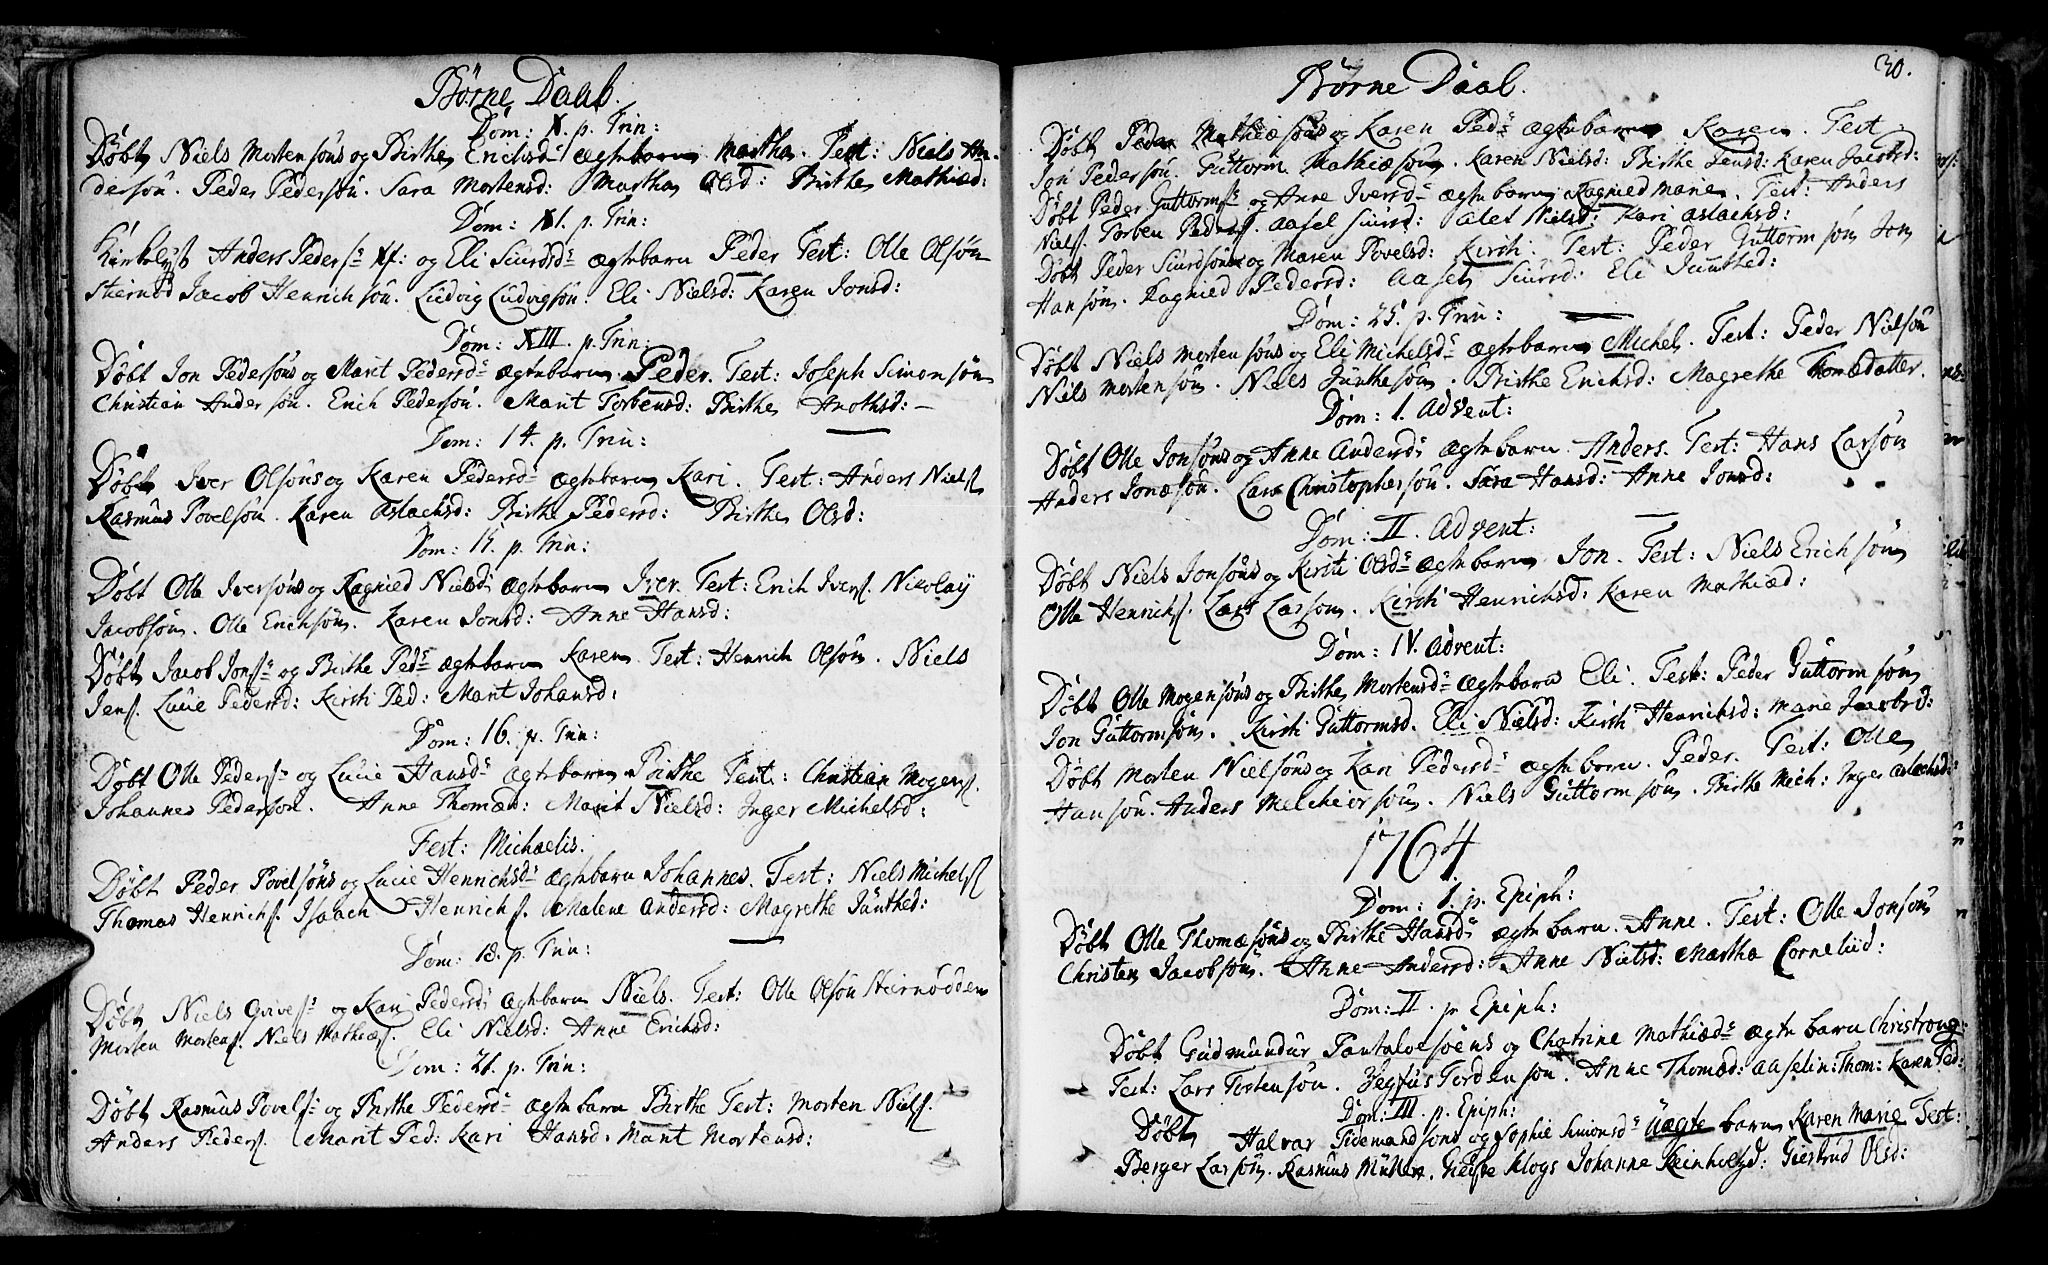 Børne Daab.
Dom: X. p. Trin:
Døbt Niels Mortensøns og Birthe Erichsd: ægte barn Martha. Test: Niels An-
dersøn. Peder Pedersøn. Sara Mortensd: Martha Olsd: Birthe Mathiæd:
Dom: XI. p. Trin:
Anders Peders: og Eli Siurdsd: ægte barn Peder Test: Olle Olsøn
Stiernød Jacob Henrichsøn. Ludvig Ludvigsøn. Eli Nielsd: Karen Jonsd:
Dom: XIII. p. Trin:
Døbt Jon Pedersøns og Marit Pedersd: ægte barn Peder. Test: Joseph Simonsøn
Christian Andersøn. Erich Pedersøn. Marit Torbensd: Birthe
Dom: 14. p. Trin:
Døbt Iver Olsøns og Karen Pedersd: ægte barn Kari. Test: Anders Niels.
Rasmus Povelsøn. Karen Aslachsd: Birthe Pedersd: Birthe Olsd:
Dom: 15. p. Trin:
Døbt Olle Iversøns og Ragnied Nielsd: ægte barn Iver. Test: Erich Ivers. Nicolaÿ
Jacobsøn. Olle Erichsøn. Karen Jonsd: Anne Hansd:
Døbt Jacob Jons: og Birthe Ped: ægte barn Karen. Test: Henrich Olsøn. Niels
Jens. Lucie Pedersd: Kirsti Ped: Marit Johansd:
Dom: 16. p. Trin:
Døbt Olle Peders: og Lucie Hansd: ægte barn Birthe Test: Christian Mogens.
Johannes Pedersøn. Anne Thomæd: Marit Nielsd: Inger Michelsd:
Fest: Michaelis.
Døbt Peder Povelsøns og Lucie Henrichsd: ægte barn Johannes. Test: Niels Michels.
Thomas Henrichs. Isaach Henrichs. Malene Andersd: Magrethe Jünthed:
Dom: 18. p. Trin:
Døbt Niels og Kari Pedersd: ægte barn Niels. Test: Olle Olsøn Stiernødden
Morten Mortens. Niels Mathiæs. Eli Nielsd: Anne Erichsd:
Dom: 21. p. Trin:
Døbt Rasmus Povels: og Birthe Pedersd: ægte barn Birthe Test: Morten Niels.
Anders Peders. Marit Ped: Kari Hansd. Marit Mortensd:
Børne Daab.
30.
Døbt Peder Mathiæsøns og Karen Ped: ægte barn Karen. Test
Jon Pedersøn. Guttorm Mathiæsøn. Karen Nielsd: Birthe Jensd: Karen Jacobsd:
Døbt Peder Guttorms: og Anne Iversd: ægte barn Ragnied Marie. Test: Anders
Niels. Torben Peders. Aasel Siursd: Alet Nielsd: Kari Aslachsd:
Døbt Peder Siurdsøns og Maren Povelsd: Kirsti. Test: Peder Guttormsøn Jon
Hansøn. Ragnied Pedersd: Aasel Siursd: Eli Junthed:
Dom: 25. p. Trin:
Døbt Niels Mortensøns og Eli Michelsd: ægte barn Michel. Test: Peder Nielsøn
Niels Mortensøn. Niels Jünthesøn. Birthe Erichsd: Magrethe Thomædatter.
Dom: 1. Advent:
Døbt Olle Jonsøns og Anne Andersd: ægte barn Anders. Test: Hans Larsøn
Anders Jonæsøn. Lars Christophersøn. Sara Hansd: Anne Jonsd:
Dom: II. Advent:
Døbt Niels Jonsøns og Kirsti Olsd: ægte barn Jon. Test: Niels Erichsøn
Olle Henrichs. Lars Larsøn. Kirsti Henrichsd: Karen Mathiæd:
Dom: IV. Advent:
Døbt Olle Mogensøns og Birthe Mortensd: ægte barn Eli. Test: Peder Guttormsøn
Jon Guttormsøn. Kirsti Guttormsd. Eli Nielsd: Kirsti Henrichsd: Marie Jacobsd:
Døbt Morten Nielsøns og Kari Pedersd: ægte barn. Peder. Test: Olle
Hansøn. Anders Melchiorsøn. Niels Guttormsøn. Birthe Mich: Inger Aslachsd:
1764
Dom: 1. p. Epiph:
Døbt Olle Thomæsøns og Birthe Hansd: ægte barn. Anne. Test: Olle Jonsøn
Christen Jacobsøn. Anne Andersd: Anne Nielsd: Martha Corneliid:
Dom: II. p. Epiph:
Døbt Gudmundur Pantaloesøens og Chatrine Mathiæd: ægte barn
Test: Lars Torstensøn. Tordensøn. Anne Thomæd: Aaselin: Thom: Karen Ped:
Dom: III. p. Epiph:
Døbt Halvar Tidemandsøns og Sophie Simonsd: Uægte barn Karen Marie Test:
Berger Larsøn. Rasmus Müller. Giefte Klogs Johanne Reinholtzd: Giertrud Olsd: